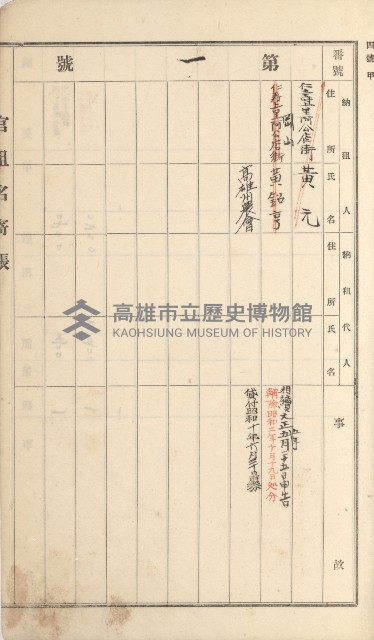 四號甲
第一號
番號
納租人
住所
氏名
納租代人
住所
氏名
事故
仁壽上里阿公店街 黃元
仁壽上里阿公店街 黃
岡山
高雄州農會
相續大正五年月二十五日申告
解除昭和二年十月十九日處分
貸付昭和十年六月三十日
官租名寄帳
高雄市立歷史博物館
KAOHSIUNG MUSEUM OF HISTORY